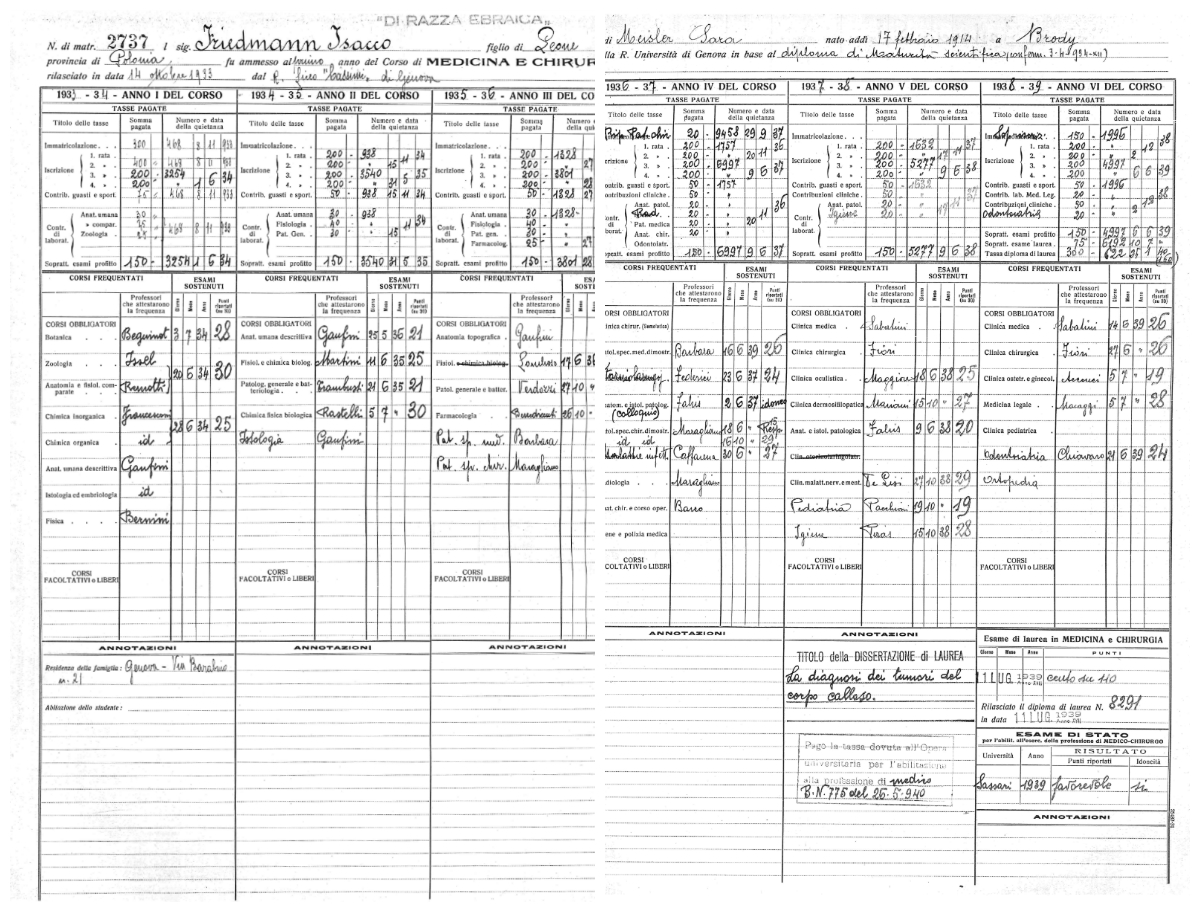 "DI RAZZA EBRAICA"
N. di matr. 2737 l sig. Friedmann Isacco figlio di Leone
di Meisler Sara nato addì 17 febbraio 1914 a Brody
provincia di Polonia. fu ammesso al primo anno del Corso di MEDICINA E CHIRUR
lla R. Università di Genova in base al diploma di Maturità scientifica
rilasciato in data 14 Ottobre 1933 dal R. liceo "Cassini" di Genova
1933 - 34 - ANNO I DEL CORSO
TASSE PAGATE
Titolo delle tasse Somma pagata Numero e data della quietanza
Immatricolazione . . . 300 468 8 11 933
Iscrizione
1. rata .
2. » . 400 468 8 11 933
3. » . 200 3254
4. » . 200 » 1 6 34
Contrib. guasti e sport. 75 468 8 11 933
Contr. di laborat.
Anat. umana 30
» compar. 25
Zoologia 468 8 11 933
Sopratt. esami profitto 150 - 3254 1 6 34
CORSI FREQUENTATI
ESAMI SOSTENUTI
Professori che attestarono la frequenza
Giorno Mese Anno Punti riportati (su 30)
CORSI OBBLIGATORI
Botanica Beguinot 3 7 34 28
Zoologia Issel
20 6 34 30
Anatomia e fisiol. comparate Remotti
Chimica inorganica Francesconi
28 6 34 25
Chimica organica id
Anat. umana descrittiva Ganfini
Istologia ed embriologia id
Fisica Bernini
CORSI FACOLTATIVI o LIBERI
ANNOTAZIONI
Residenza della famiglia: Genova - Via Barabino
n. 21
Abitazione dello studente:
1934 - 35 - ANNO II DEL CORSO
TASSE PAGATE
Titolo delle tasse Somma pagata Numero e data della quietanza
Immatricolazione . . .
Iscrizione
1. rata . 200 - 938
2. » . 200 - » 15 11 34
3. » . 200 - 3540 5 35
4. » . 200 - » 31 5
Contrib. guasti e sport. 50 - 938 15 11 34
Contr. di laborat.
Anat. umana 30 - 938
Fisiologia 40 - » 11 34
Pat. Gen. 30 - 15
Sopratt. esami profitto 150 - 3540 31 5 35
CORSI FREQUENTATI
ESAMI SOSTENUTI
Professori che attestarono la frequenza
Giorno Mese Anno Punti riportati (su 30)
CORSI OBBLIGATORI
Anat. umana descrittiva Ganfini 25 5 36 21
Fisiol. e chimica biolog. Martini 11 6 35 25
Patolog. generale e batteriologia Frambusti 21 6 35 21
Chimica fisica biologica Rastelli 5 7 » 30
Istologia Ganfini
CORSI FACOLTATIVI o LIBERI
ANNOTAZIONI
1935 - 36 - ANNO III DEL CO
TASSE PAGATE
Titolo delle tasse Somma pagata Numero e data della quietanz
Immatricolazione . . .
Iscrizione
1. rata . 200 - 1828
2. » . 200 - » 27
3. » . 200 - 3801
4. » . 200 - » 28
Contrib. guasti e sport. 50 - 1828 27
Contr. di laborat.
Anat. umana 30 - 1828
Fisiologia 40 - »
Pat. gen. 30 - »
Farmacolog. 25 - » 27
Sopratt. esami profitto 150 - 3801 28
CORSI FREQUENTATI
ESAMI SOSTENUTI
Professori che attestarono la frequenza
Giorno Mese Anno
CORSI OBBLIGATORI
Anatomia topografica Ganfini
Fisiol. e chimica biolog. 17 6 36
Patol. generale e batter. Verdozzi 27 10 »
Farmacologia 26 10 -
Pat. sp. med. Barbara
Pat. sp. chir. Maragliano
CORSI FACOLTATIVI o LIBERI
ANNOTAZIONI
1936 - 37 - ANNO IV DEL CORSO
TASSE PAGATE
Titolo delle tasse Somma pagata Numero e data della quietanza
20 - 9458 29 9 37
crizione
1. rata . 200 - 1757
2. » . 200 - » 20 11 36
3. » . 200 - 6997
4. » . 200 - » 9 6 37
ontrib. guasti e sport. 50 - 1757
ontribuzioni cliniche . 50 - »
ontr. di laborat.
Anat. patol. 20 - » 36
Rad. 20 - » 11
Pat. medica 20 - » 20
Anat. chir. 20 -
Odontoiatr.
opratt. esami profitto 150 - 6997 9 6 37
CORSI FREQUENTATI
ESAMI SOSTENUTI
Professori che attestarono la frequenza
Giorno Mese Anno Punti riportati (su 30)
ORSI OBBLIGATORI
linica chirur. (semeiotica)
atol. spec. med. dimostr. Barbara 16 6 39 26
Federici 23 6 37 24
natom. e istol. patolog. (colloquio) Faris 2 6 37 idoneo
atol. spec. chir. dimostr. Maragliano 18 6 » Resp
id id 16 10 » 29
malattie infett. Caffarena 30 6 » 27
adiologia Maragliano
nat. chir. e corso oper. Basso
iene e polizia medica
CORSI FACOLTATIVI o LIBERI
ANNOTAZIONI
1937 - 38 - ANNO V DEL CORSO
TASSE PAGATE
Titolo delle tasse Somma pagata Numero e data della quietanza
Immatricolazione . . .
Iscrizione
1. rata . 200 - 1532 37
2. » . 200 - » 17 11
3. » . 200 - 5277 38
4. » . 200 - » 9 6
Contrib. guasti e sport. 50 - 1532
Contribuzioni cliniche . 50 - » 37
Contr. di laborat.
Anat. patol. 20 - » 11
Igiene 20 - » 17
Sopratt. esami profitto 150 - 5277 9 6 38
CORSI FREQUENTATI
ESAMI SOSTENUTI
Professori che attestarono la frequenza
Giorno Mese Anno Punti riportati (su 30)
CORSI OBBLIGATORI
Clinica medica Sabatini
Clinica chirurgica Fiori
Clinica oculistica Maggiore 18 6 38 25
Clinica dermosifilopatica Mariani 15 10 » 27
Anat. e istol. patologica Faris 9 6 38 20
Clin. otorinolaringoiatr.
Clin. malatt. nerv. e ment. De Lisi 27 10 38 29
Pediatria Pacchioni 19 10 » 19
Igiene Piras 15 10 38 28
CORSI FACOLTATIVI o LIBERI
ANNOTAZIONI
TITOLO della DISSERTAZIONE di LAUREA
La diagnosi dei tumori del
corpo calloso.
Pago la tassa dovuta all'Opera
universitaria per l'abilitazione
alla professione di medico
B.N. 775 del 26.5.940
1938 - 39 - ANNO VI DEL CORSO
TASSE PAGATE
Titolo delle tasse Somma pagata Numero e data della quietanza
150 - 1996 38
Iscrizione
1. rata . 200 - » 12
2. » . 200 - » 2
3. » . 200 - 4997
4. » . 200 - » 6 6 39
Contrib. guasti e sport. 50 - 1996
Contrib. lab. Med. Leg. 20 - »
Contribuzioni cliniche . 50 - » 12 38
Odontoiatria 20 - » 2
Sopratt. esami profitto 150 - 4997 6 6 39
Sopratt. esame laurea 75 - 6192 10 7 »
Tassa diploma di laurea 300 - 622
CORSI FREQUENTATI
ESAMI SOSTENUTI
Professori che attestarono la frequenza
Giorno Mese Anno Punti riportati (su 30)
CORSI OBBLIGATORI
Clinica medica Sabatini 14 6 39 26
Clinica chirurgica Fiori 27 6 » 26
Clinica ostetr. e ginecol. 5 7 » 19
Medicina legale 5 7 » 28
Clinica pediatrica
Odontoiatria Chiavaro 21 6 39 24
Ortopedia
CORSI FACOLTATIVI o LIBERI
ANNOTAZIONI
Esame di laurea in MEDICINA e CHIRURGIA
Giorno Mese Anno PUNTI
11 LUG 1939 Anno XVII cento su 110
Rilasciato il diploma di laurea N. 8291
in data 11 LUG 1939 Anno XVII
ESAME DI STATO
per l'abilit. all'eserc. della professione di MEDICO-CHIRURGO
Università Anno RISULTATO
Punti riportati Idoneità
Sassari 1939 favorevole si
ANNOTAZIONI